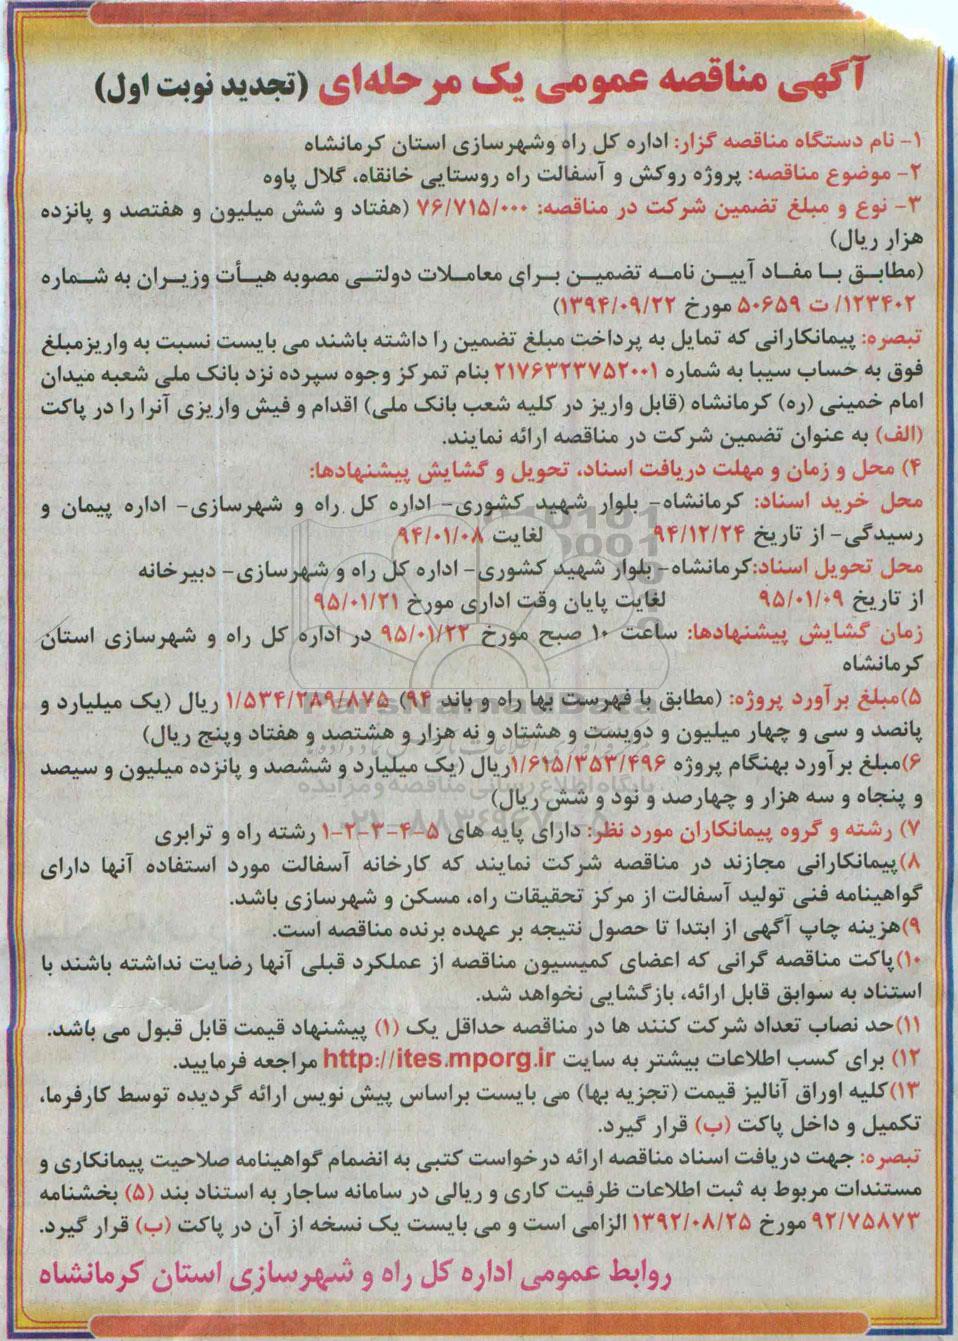 آگهی مناقصه عمومی یک مرحله‌ای (تجدید نوبت اول)
۱- نام دستگاه مناقصه گزار: اداره کل راه وشهرسازی استان کرمانشاه
۲- موضوع مناقصه: پروژه روکش و آسفالت راه روستایی خانقاه، گلال پاوه
۳- نوع و مبلغ تضمین شرکت در مناقصه: ۷۶/۷۱۵/۰۰۰ (هفتاد و شش میلیون و هفتصد و پانزده
هزار ریال)
(مطابق با مفاد آیین نامه تضمین برای معاملات دولتی مصوبه هیأت وزیران به شماره
۱۲۳۴۰۲/ ت ۵۰۶۵۹ مورخ ۱۳۹۴/۰۹/۲۲)
تبصره: پیمانکارانی که تمایل به پرداخت مبلغ تضمین را داشته باشند می بایست نسبت به واریزمبلغ
فوق به حساب سیبا به شماره ۲۱۷۶۳۲۳۷۵۲۰۰۱ بنام تمرکز وجوه سپرده نزد بانک ملی شعبه میدان
امام خمینی (ره) کرمانشاه (قابل واریز در کلیه شعب بانک ملی) اقدام و فیش واریزی آنرا را در پاکت
(الف) به عنوان تضمین شرکت در مناقصه ارائه نمایند.
۴) محل و زمان و مهلت دریافت اسناد، تحویل و گشایش پیشنهادها:
محل خرید اسناد: کرمانشاه- بلوار شهید کشوری- اداره کل راه و شهرسازی- اداره پیمان و
رسیدگی- از تاریخ ۹۴/۱۲/۲۴ لغایت ۹۴/۰۱/۰۸
محل تحویل اسناد:کرمانشاه- بلوار شهید کشوری- اداره کل راه و شهرسازی- دبیرخانه
از تاریخ ۹۵/۰۱/۰۹ لغایت پایان وقت اداری مورخ ۹۵/۰۱/۲۱
زمان گشایش پیشنهادها: ساعت ۱۰ صبح مورخ ۹۵/۰۱/۲۲ در اداره کل راه و شهرسازی استان
کرمانشاه
۵)مبلغ برآورد پروژه: (مطابق با فهرست بها راه و باند ۹۴) ۱/۵۳۴/۲۸۹/۸۷۵ ریال (یک میلیارد و
پانصد و سی و چهار میلیون و دویست و هشتاد و نه هزار و هشتصد و هفتاد وپنج ریال)
۶)مبلغ برآورد بهنگام پروژه ۱/۶۱۵/۳۵۳/۴۹۶ریال (یک میلیارد و ششصد و پانزده میلیون و سیصد
و پنجاه و سه هزار و چهارصد و نود و شش ریال)
۷) رشته و گروه پیمانکاران مورد نظر: دارای پایه های ۵-۴-۳-۲-۱ رشته راه و ترابری
۸)پیمانکارانی مجازند در مناقصه شرکت نمایند که کارخانه آسفالت مورد استفاده آنها دارای
گواهینامه فنی تولید آسفالت از مرکز تحقیقات راه، مسکن و شهرسازی باشد.
۹)هزینه چاپ آگهی از ابتدا تا حصول نتیجه بر عهده برنده مناقصه است.
۱۰)پاکت مناقصه گرانی که اعضای کمیسیون مناقصه از عملکرد قبلی آنها رضایت نداشته باشند با
استناد به سوابق قابل ارائه، بازگشایی نخواهد شد.
۱۱)حد نصاب تعداد شرکت کنند ها در مناقصه حداقل یک (۱) پیشنهاد قیمت قابل قبول می باشد.
۱۲) برای کسب اطلاعات بیشتر به سایت http://ites.mporg.ir مراجعه فرمایید.
۱۳)کلیه اوراق آنالیز قیمت (تجزیه بها) می بایست براساس پیش نویس ارائه گردیده توسط کارفرما،
تکمیل و داخل پاکت (ب) قرار گیرد.
تبصره: جهت دریافت اسناد مناقصه ارائه درخواست کتبی به انضمام گواهینامه صلاحیت پیمانکاری و
مستندات مربوط به ثبت اطلاعات ظرفیت کاری و ریالی در سامانه ساجار به استناد بند (۵) بخشنامه
۹۲/۷۵۸۷۳ مورخ ۱۳۹۲/۰۸/۲۵ الزامی است و می بایست یک نسخه از آن در پاکت (ب) قرار گیرد.
روابط عمومی اداره کل راه و شهرسازی استان کرمانشاه
ParsNamadData
پایگاه اطلاع رسانی مناقصه و مزایده